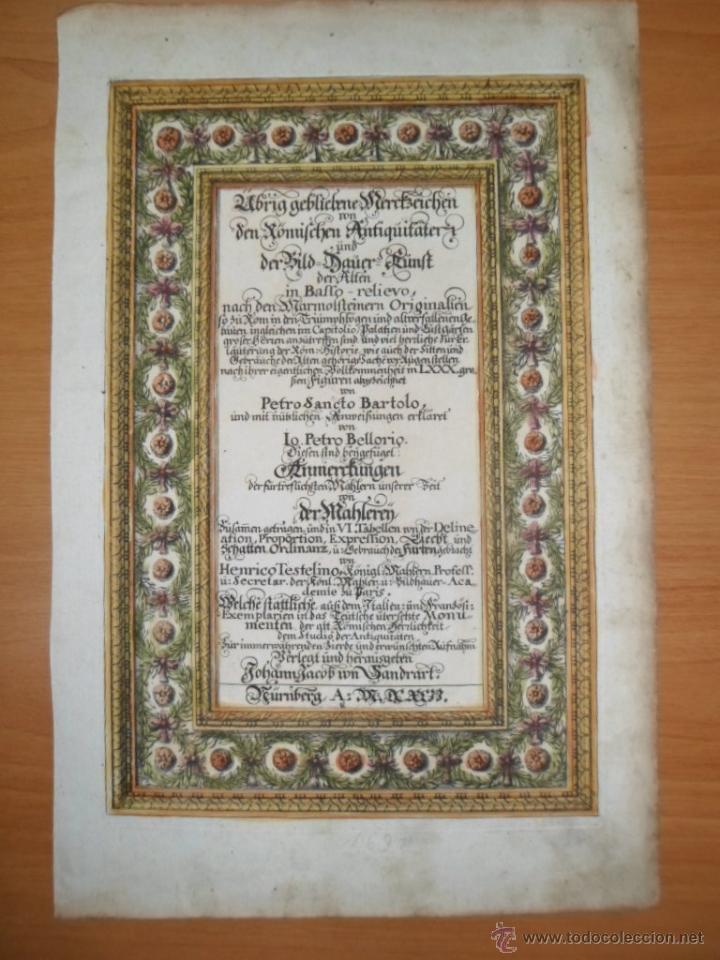 Übrig gebliebene Merckzeichen
von
den Römischen Antiquitäten,
und
der Bild-Hauer-Kunst
der Alten
in Basso-relievo,
nach den Marmolsteinern Originalien
so zu Rom in den Triumphbogen und alten fallenen Ge
bäuen ingleichen im Capitolio, Palatien und Lustgärten
groser Herren anzutreffen sind, und viel herrliche zur Er
läuterung der Röm: Historie, wie auch der Sitten und
Gebräuche der Alten gehörige Sache vor Augen stellen
nach ihrer eigentlichen Vollkommenheit in LXXX. gro
ßen Figuren abgezeichnet
von
Petro Sancto Bartolo,
und mit nützlichen Anweißungen erkläret
von
Io. Petro Bellorio.
Diesen sind beygefüget
Anmerckungen
der fürtreflichsten Mahlern unserer Zeit
von
der Mahlerey
Zusamen getragen, und in VI. Tabellen von der Deline
ation, Proportion, Expression, Liecht und
Schatten Ordinanz, u: Gebrauch der Farben gebracht
von
Henrico Testelino, Königl: Mahlern, Profess:
u: Secretar. der Könl. Mahler: u: Bildhauer-Aca
demie zu Paris.
Welche stattliche auß dem Italien: und Franbösi:
Exemplarien in das Teutsche übersetzte Monu
menten der alt Römischen Herrlichkeit
dem Studio der Antiquitäten
Zur immerwährenden Zierde und erwünschten Aufnahm
Verlegt und herausgeben
Johann Jacob von Sandrart.
Nürnberg A: M.DC.XCII.
169
© www.todocoleccion.net